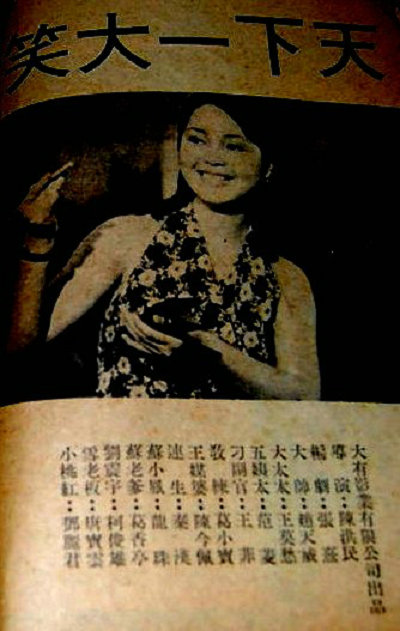 天下一大笑
大有影業有限公司出
導演：陳洪民
編劇：張
大帥：趙天威
大太太：王莫愁
五姨太：范
刁副官：王菲
葛小寶
王媒婆：陳今佩
連生：秦漢
蘇小鳳：龍珠
蘇老爹：葛香亭
劉震宇：柯俊雄
雪老板：唐寶雲
小桃紅：鄧麗君